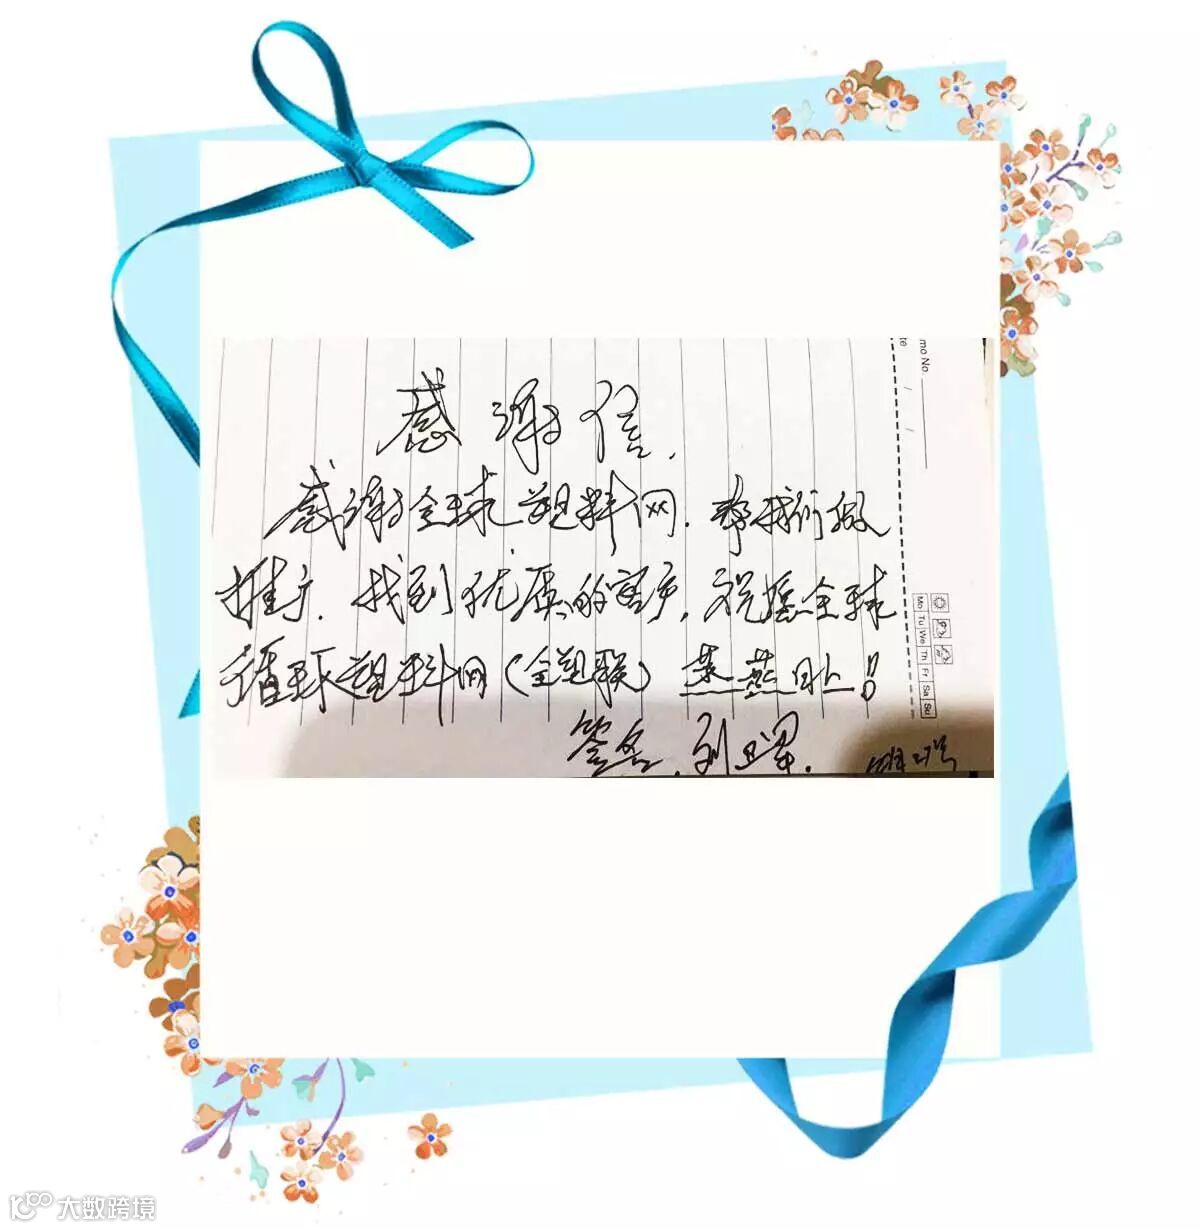 感谢信.
感谢全球塑料网.帮我们做
推广.找到优质的客户,祝愿全球
循环塑料网(全塑联)蒸蒸日上!
签名.刘
mo No.
te
Mo Tu We Th Fr Sa Su
大数跨境